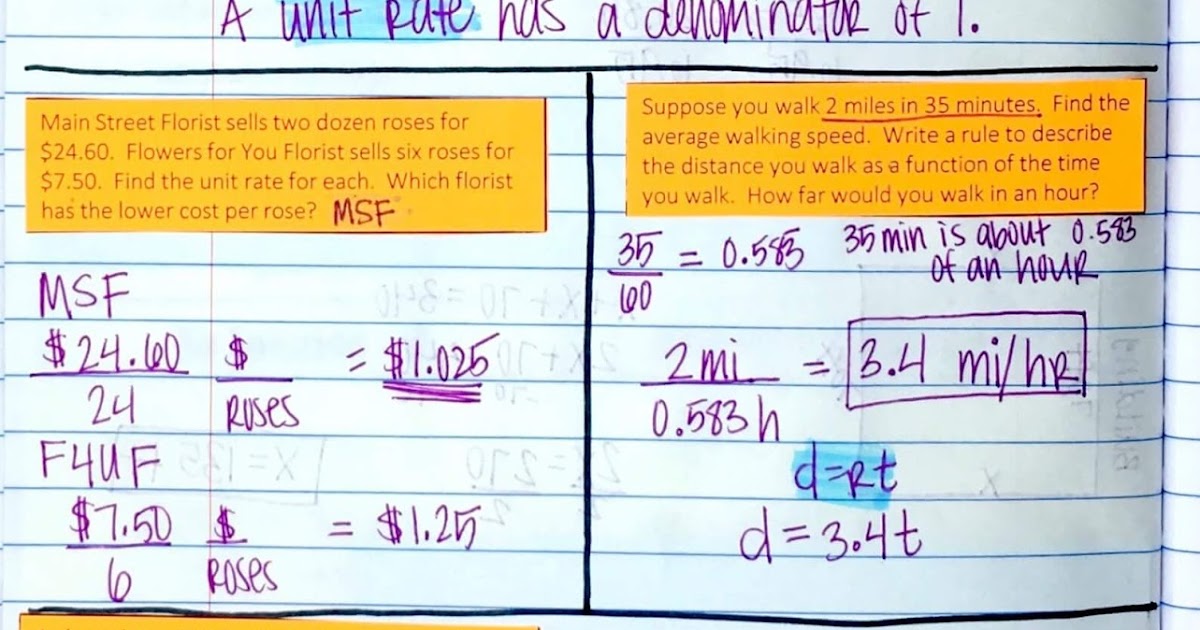 A unit Rate has a denominator of 1.
Main Street Florist sells two dozen roses for
$24.60. Flowers for You Florist sells six roses for
$7.50. Find the unit rate for each. Which florist
has the lower cost per rose? MSF
MSF
$24.60 $ = $1.025
24 Roses
F4UF
$7.50 $ = $1.25
6 Roses
Suppose you walk 2 miles in 35 minutes. Find the
average walking speed. Write a rule to describe
the distance you walk as a function of the time
you walk. How far would you walk in an hour?
35 = 0.583 35 min is about 0.583
60 of an hour
2 mi = 3.4 mi/hr
0.583 h
d=Rt
d=3.4t